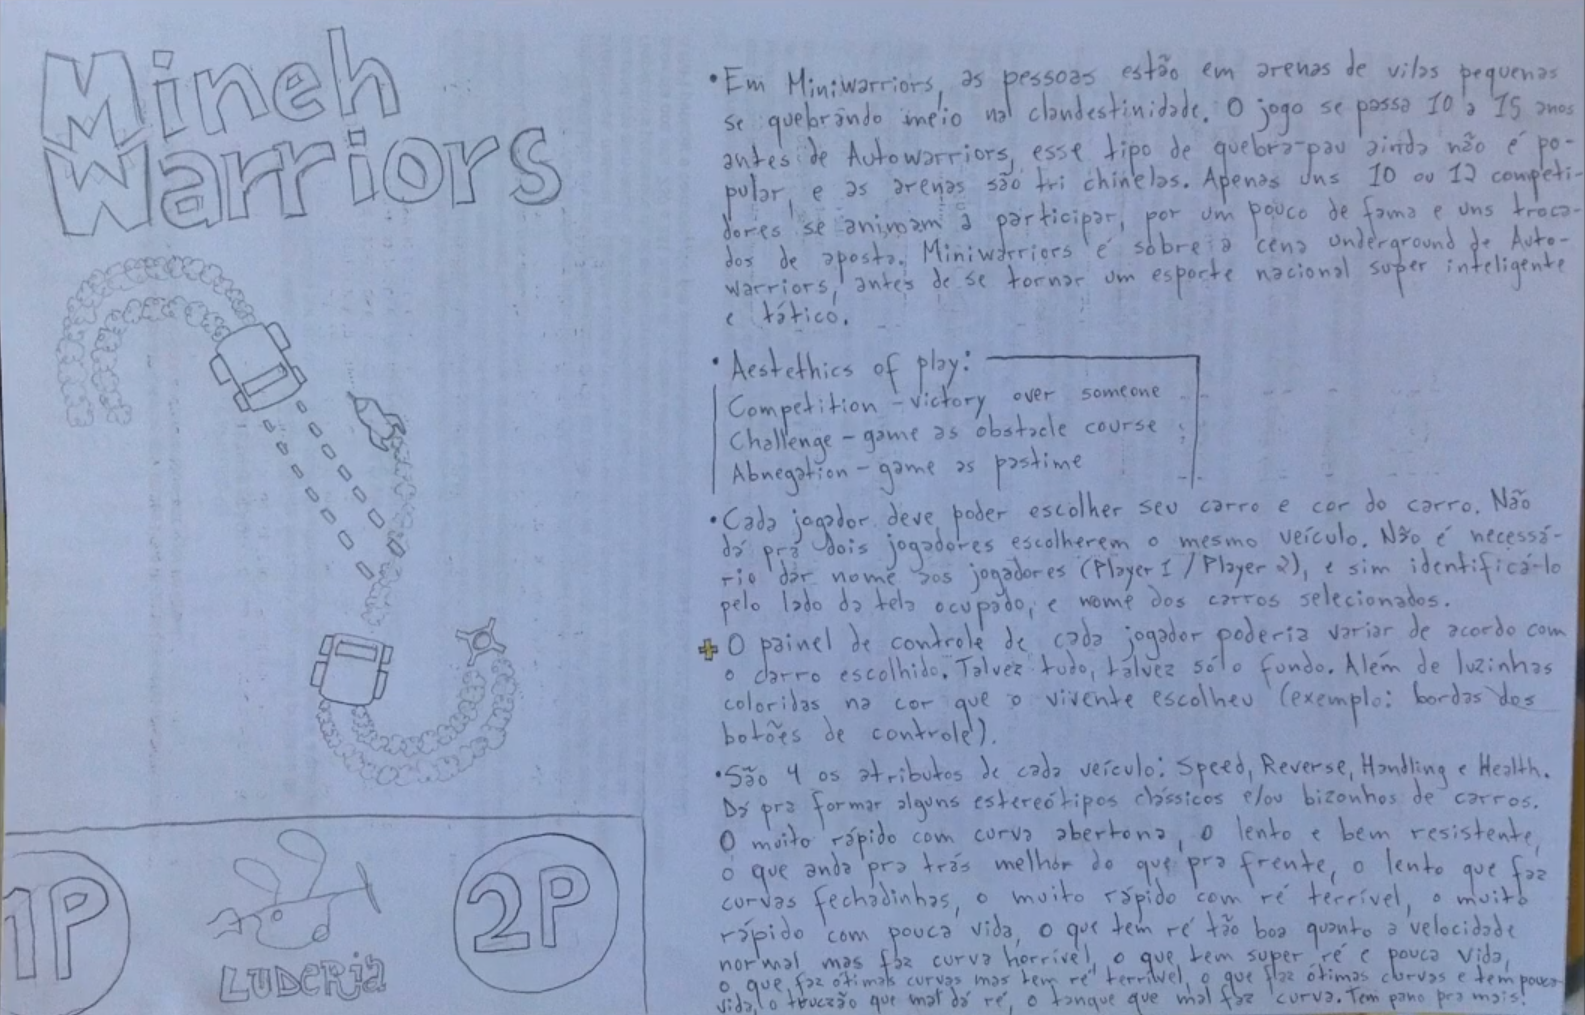 Mineh
Warriors
1P
LUDERia
2P
• Em Miniwarriors, as pessoas estão em arenas de vilas pequenas
se quebrando meio na clandestinidade. O jogo se passa 10 a 15 anos
antes de Autowarriors, esse tipo de quebra-pau ainda não é po-
pular, e as arenas são tri chinelas. Apenas uns 10 ou 12 competi-
dores se animam a participar, por um pouco de fama e uns troca-
dos de aposta. Miniwarriors é sobre a cena underground de Auto-
warriors, antes de se tornar um esporte nacional super inteligente
e tático.
• Aestethics of play:
Competition - victory over someone
Challenge - game as obstacle course
Abnegation - game as pastime
• Cada jogador deve poder escolher seu carro e cor do carro. Não
dá pra dois jogadores escolherem o mesmo veículo. Não é necessá-
rio dar nome aos jogadores (Player 1 / Player 2), e sim identificá-lo
pelo lado da tela ocupado, e nome dos carros selecionados.
+ O painel de controle de cada jogador poderia variar de acordo com
o carro escolhido. Talvez tudo, talvez só o fundo. Além de luzinhas
coloridas na cor que o vivente escolheu (exemplo: bordas dos
botões de controle).
• São 4 os atributos de cada veículo: Speed, Reverse, Handling e Health.
Dá pra formar alguns estereótipos clássicos e/ou bizonhos de carros.
O muito rápido com curva abertona, o lento e bem resistente,
o que anda pra trás melhor do que pra frente, o lento que faz
curvas fechadinhas, o muito rápido com ré terrível, o muito
rápido com pouca vida, o que tem ré tão boa quanto a velocidade
normal mas faz curva horrível, o que tem super ré e pouca vida,
o que faz ótimas curvas mas tem ré terrível, o que faz ótimas curvas e tem pouca
vida, o truczão que mal dá ré, o tanque que mal faz curva. Tem pano pra mais!